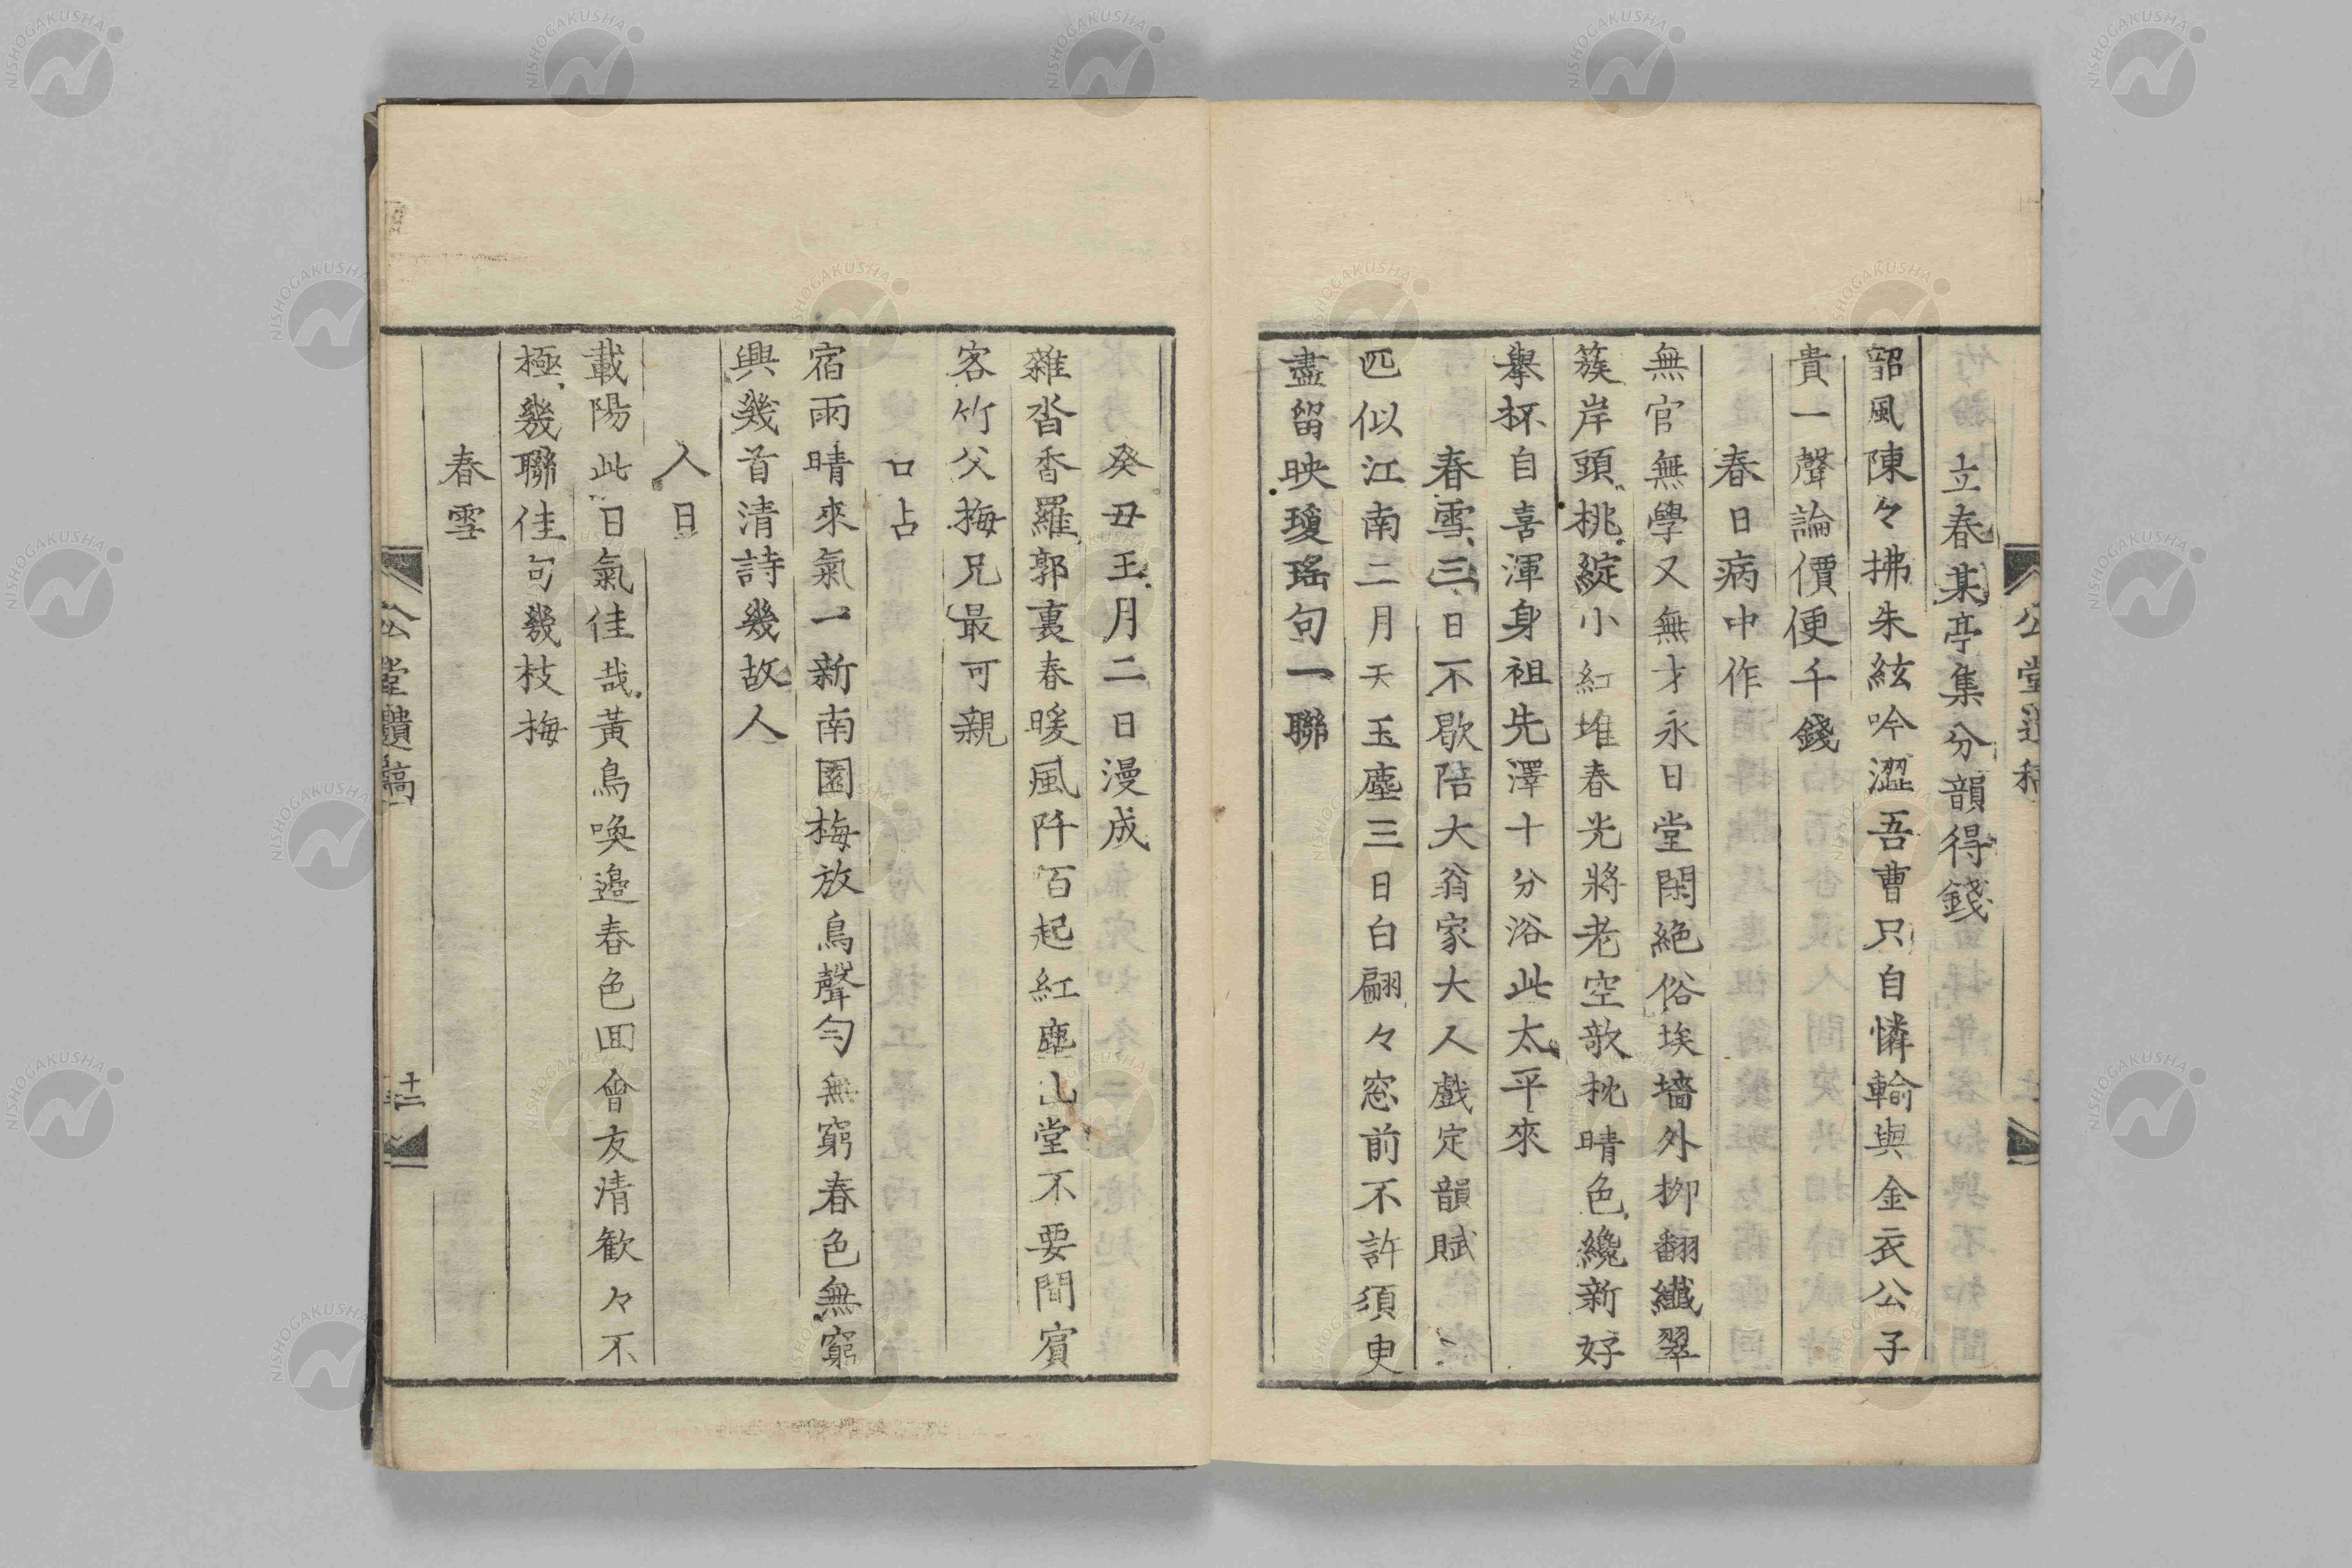 立春某亭集分韻得錢
韶風陳々拂朱絃吟澀吾曹只自憐輸與金衣公子
貴一聲論價便千錢
春日病中作
無官無學又無才永日堂閑絕俗埃墻外柳翻纖翠
簇岸頭桃綻小紅堆春光將老空欹枕晴色纔新好
舉杯自喜渾身祖先澤十分浴此太平來
春雪三日不歇陪大翁家大人戲定韻賦
匹似江南二月天玉塵三日白翩々窓前不許須臾
盡留映瓊瑤句一聯
癸丑王月二日漫成
雜沓香羅郭裏春暖風阡百起紅塵山堂不要間賓
客竹父梅兄最可親
口占
宿雨晴來氣一新南園梅放鳥聲勻無窮春色無窮
興幾首清詩幾故人
人日
載陽此日氣佳哉黃鳥喚邊春色回會友清歓々不
極幾聯佳句幾枝梅
春雪
公堂遺稿
十二
NISHOGAKUSHA